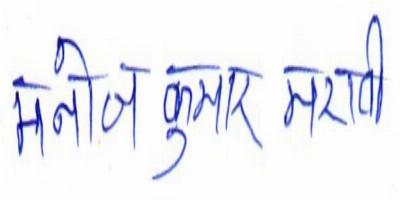 मनोज कुमार मरावी